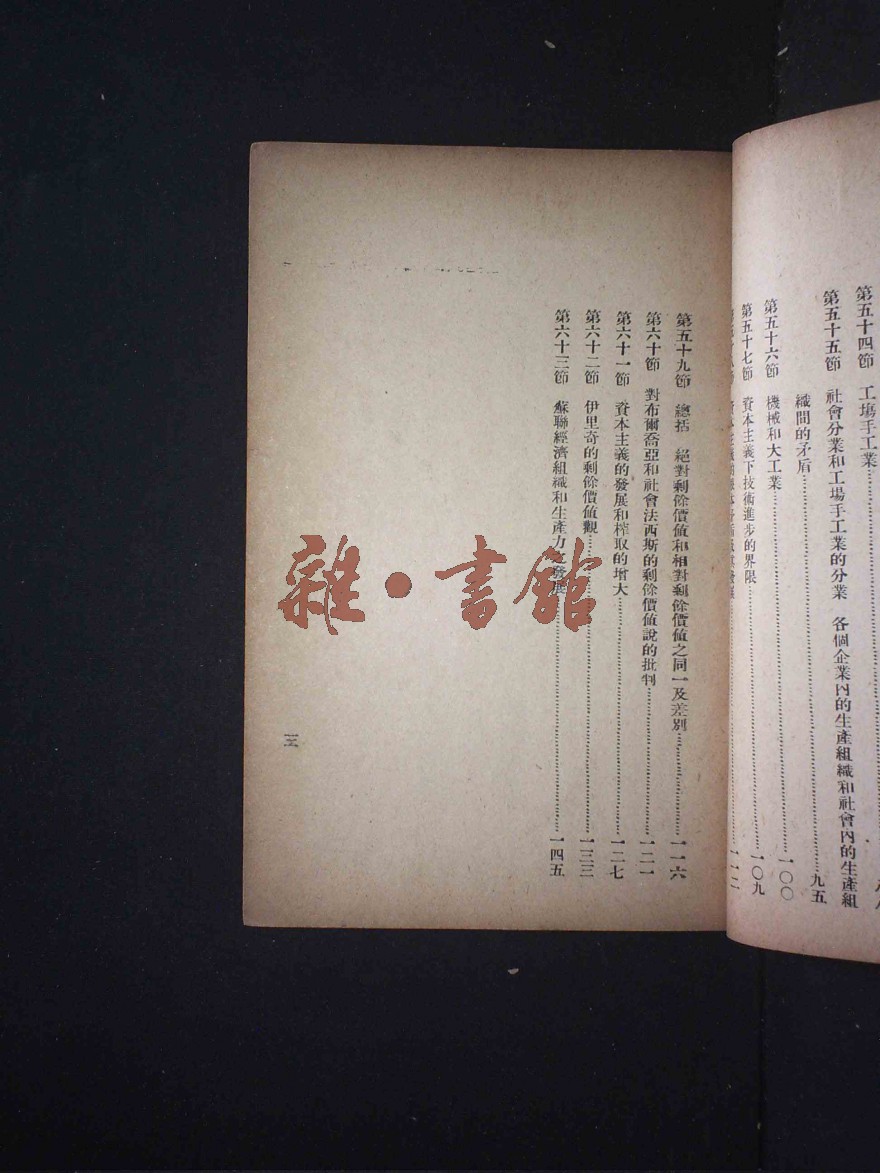 第五十四節　工場手工業
第五十五節　社會分業和工場手工業的分業　各個企業內的生產組
織間的矛盾……九五
第五十六節　機械和大工業……一〇〇
第五十七節　資本主義下技術進步的界限……一〇九
一一二
第五十九節　總括　絕對剩餘價値和相對剩餘價値之同一及差別……一一六
第六十節　對布爾喬亞和社會法西斯的剩餘價値說的批判……一二一
第六十一節　資本主義的發展和榨取的增大……一二七
第六十二節　伊里奇的剩餘價値觀……一三三
第六十三節　蘇聯經濟組織和生產力之發展……一四五
三
雜·書館